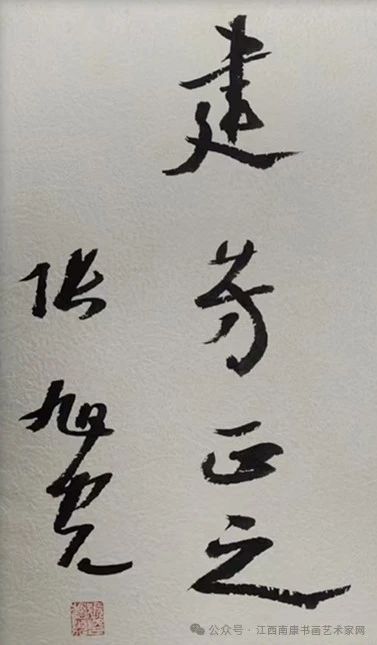 建芳正之
张旭光
公众号·江西南康书画艺术家网